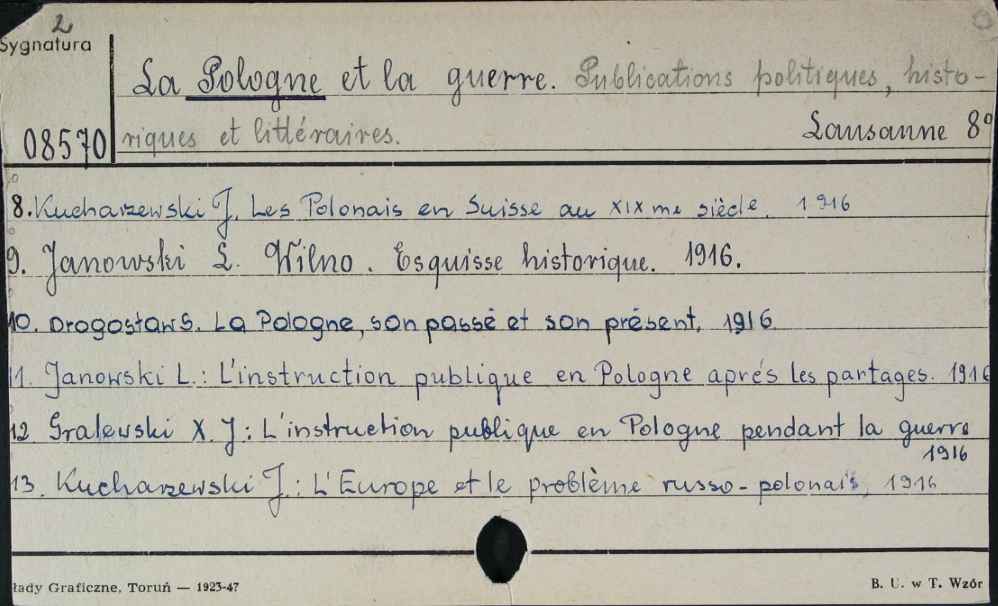 2
Sygnatura
La Pologne et la guerre. Publications politiques, histo-
08570 riques et littéraires. Lausanne 8º
8. Kucharzewski J. Les Polonais en Suisse au XIXme siècle. 1916
9. Janowski L. Wilno. Esquisse historique. 1916.
10. Drogosław S. La Pologne, son passé et son présent, 1916.
11. Janowski L.: L'instruction publique en Pologne aprés les partages. 1916
12 Gralewski X. J: L'instruction publique en Pologne pendant la guerre
1916
13. Kucharzewski J.: L'Europe et le problème russo-polonais, 1916
łady Graficzne, Toruń — 1923-47
B. U. w T. Wzór